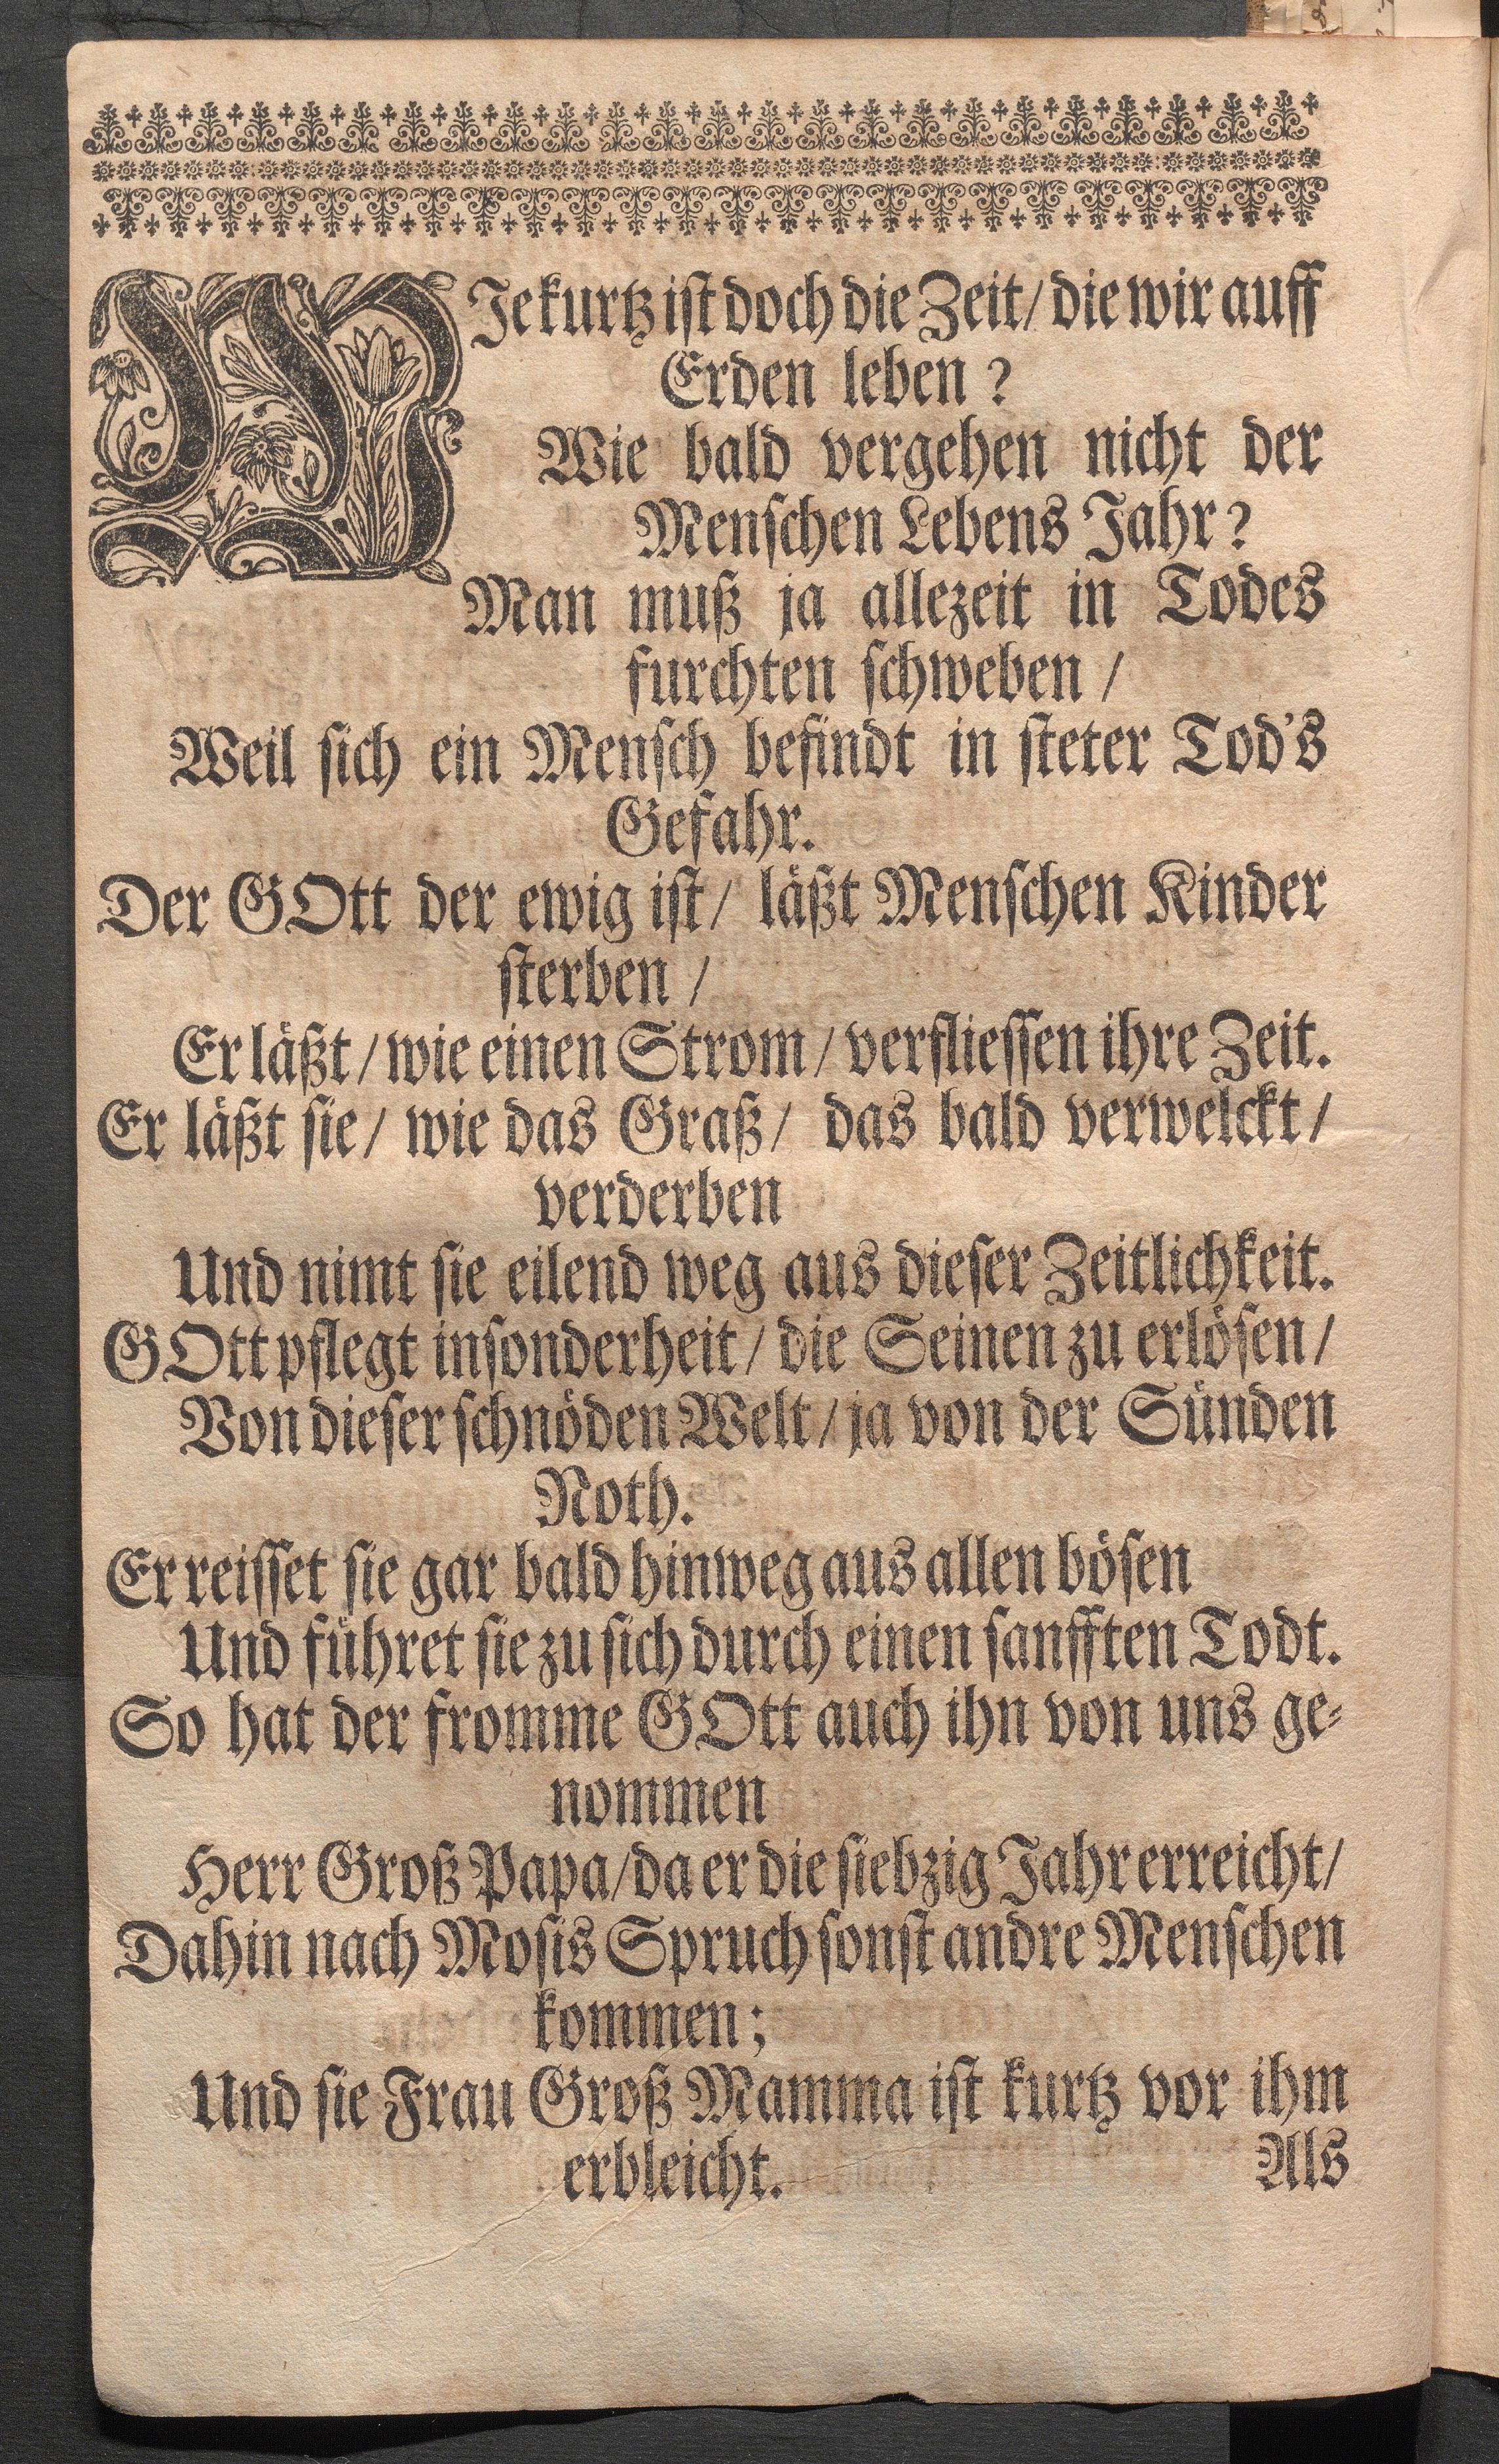 WJe kurtz ist doch die Zeit / die wir auff
Erden leben?
Wie bald vergehen nicht der
Menschen Lebens Jahr?
Man muß ja allezeit in Todes
furchten schweben /
Weil sich ein Mensch befindt in steter Tod's
Gefahr.
Der GOtt der ewig ist / läßt Menschen Kinder
sterben /
Er läßt / wie einen Strom / verfliessen ihre Zeit.
Er läßt sie / wie das Graß / das bald verwelckt /
verderben
Und nimt sie eilend weg aus dieser Zeitlichkeit.
GOtt pflegt insonderheit / die Seinen zu erlösen /
Von dieser schnöden Welt / ja von der Sünden
Noth.
Er reisset sie gar bald hinweg aus allen bösen
Und führet sie zu sich durch einen sanfften Todt.
So hat der fromme GOtt auch ihn von uns ge-
nommen
Herr Groß Papa / da er die siebzig Jahr erreicht /
Dahin nach Mosis Spruch sonst andre Menschen
kommen;
Und sie Frau Groß Mamma ist kurtz vor ihm
erbleicht.
Als